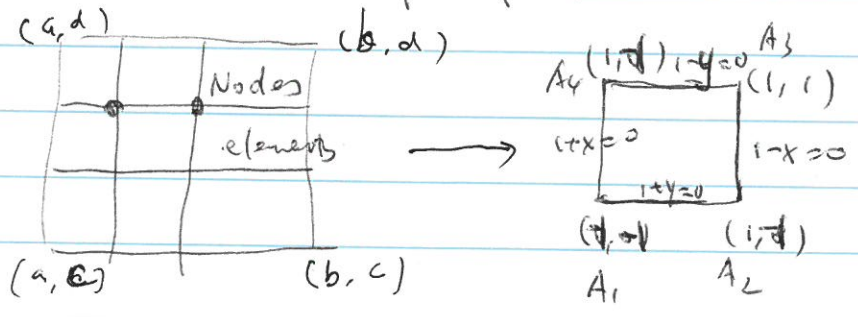 (a,d) (b,d)
Nodes
elements
(a,c) (b,c)
A4 1-y=0 A3
(1,1)
1+x=0 1-x=0
1+y=0
A1 A2